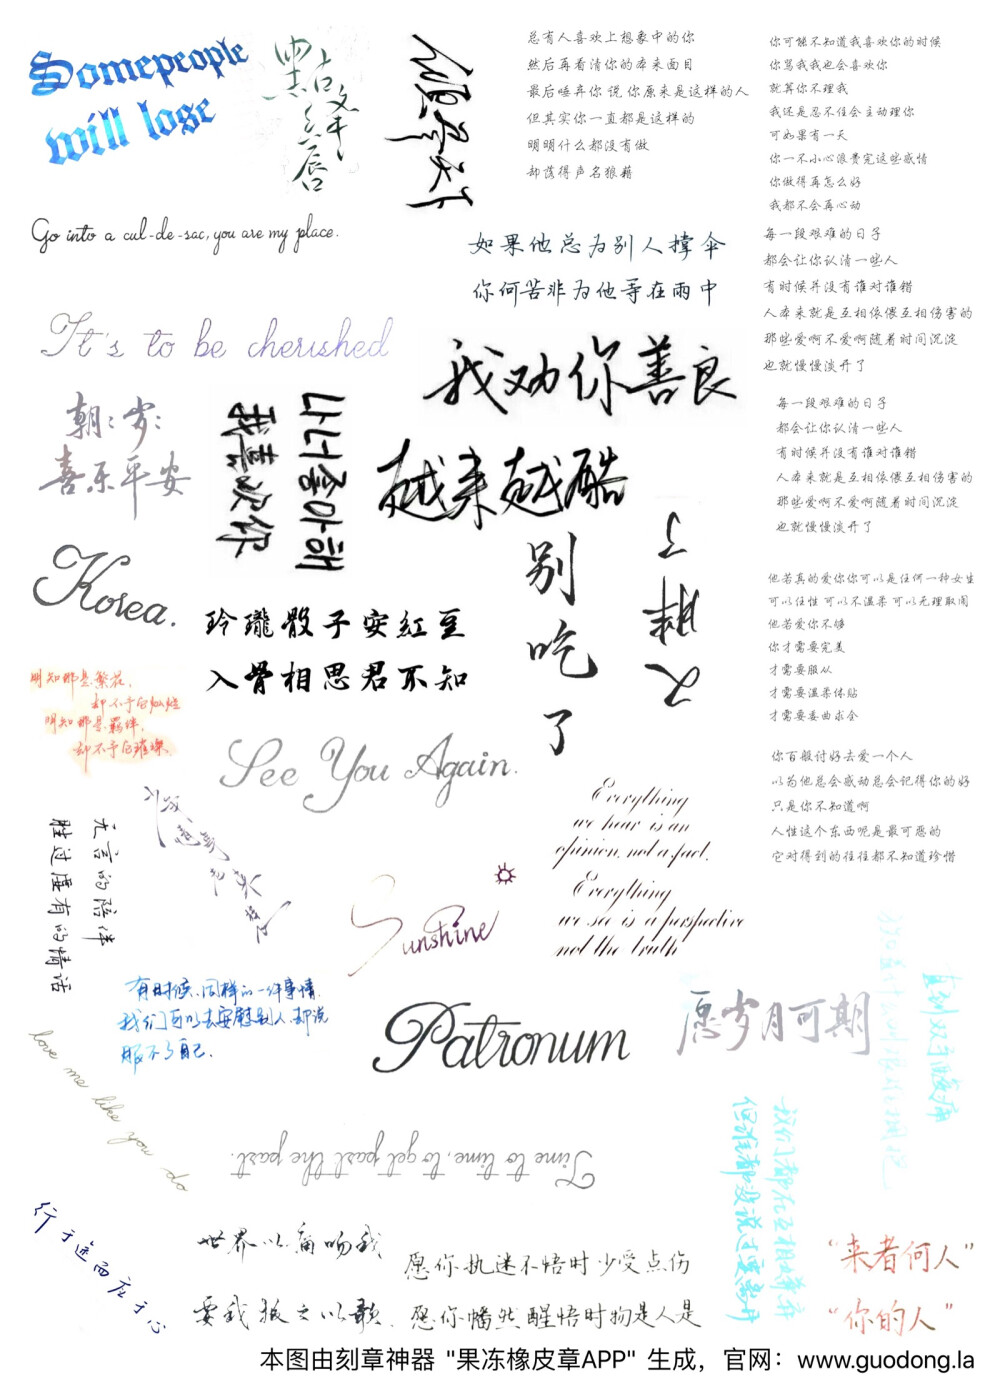 Somepeople
will lose
点绛唇
总有人喜欢上想象中的你
然后再看清你的本来面目
最后唾弃你 说 你原来是这样的人
但其实你一直都是这样的
明明什么都没有做
却落得声名狼藉
你可能不知道我喜欢你的时候
你骂我我也会喜欢你
就算你不理我
我还是忍不住会主动理你
可如果有一天
你一不小心浪费完这些感情
你做得再怎么好
我都不会再心动
Go into a cul-de-sac, you are my place.
如果他总为别人撑伞
你何苦非为他等在雨中
每一段艰难的日子
都会让你认清一些人
有时候并没有谁对谁错
人本来就是互相依偎互相伤害的
那些爱啊不爱啊随着时间沉淀
也就慢慢淡开了
It's to be cherished
我劝你善良
朝朝岁岁
喜乐平安
나너좋아해
我喜欢你
越来越酷
每一段艰难的日子
都会让你认清一些人
有时候并没有谁对谁错
人本来就是互相依偎互相伤害的
那些爱啊不爱啊随着时间沉淀
也就慢慢淡开了
别吃了
又胖了
Korea.
玲珑骰子安红豆
入骨相思君不知
他若真的爱你你可以是任何一种女生
可以任性 可以不温柔 可以无理取闹
他若爱你不够
你才需要完美
才需要服从
才需要温柔体贴
才需要委曲求全
明知那是繁花,
却不予它灿烂
明知那是羁绊,
却不予它璀璨.
See You Again.
你百般讨好去爱一个人
以为他总会感动总会记得你的好
只是你不知道啊
人性这个东西呢是最可恶的
它对得到的往往都不知道珍惜
Everything
we hear is an
opinion, not a fact.
Everything
we see is a perspective
not the truth
无言的陪伴
胜过虚有的情话
Sunshine
有时候,同样的一件事情,
我们可以去安慰别人,却说
服不了自己.
Patronum
愿岁月可期
love me like you do
Time to time, to get past the past.
我们都在互相嫌弃
但谁都没说过要离开
行于途而应于心
世界以痛吻我
要我报之以歌.
愿你执迷不悟时少受点伤
愿你幡然醒悟时物是人是
“来者何人”
“你的人”
本图由刻章神器 "果冻橡皮章APP" 生成，官网：www.guodong.la